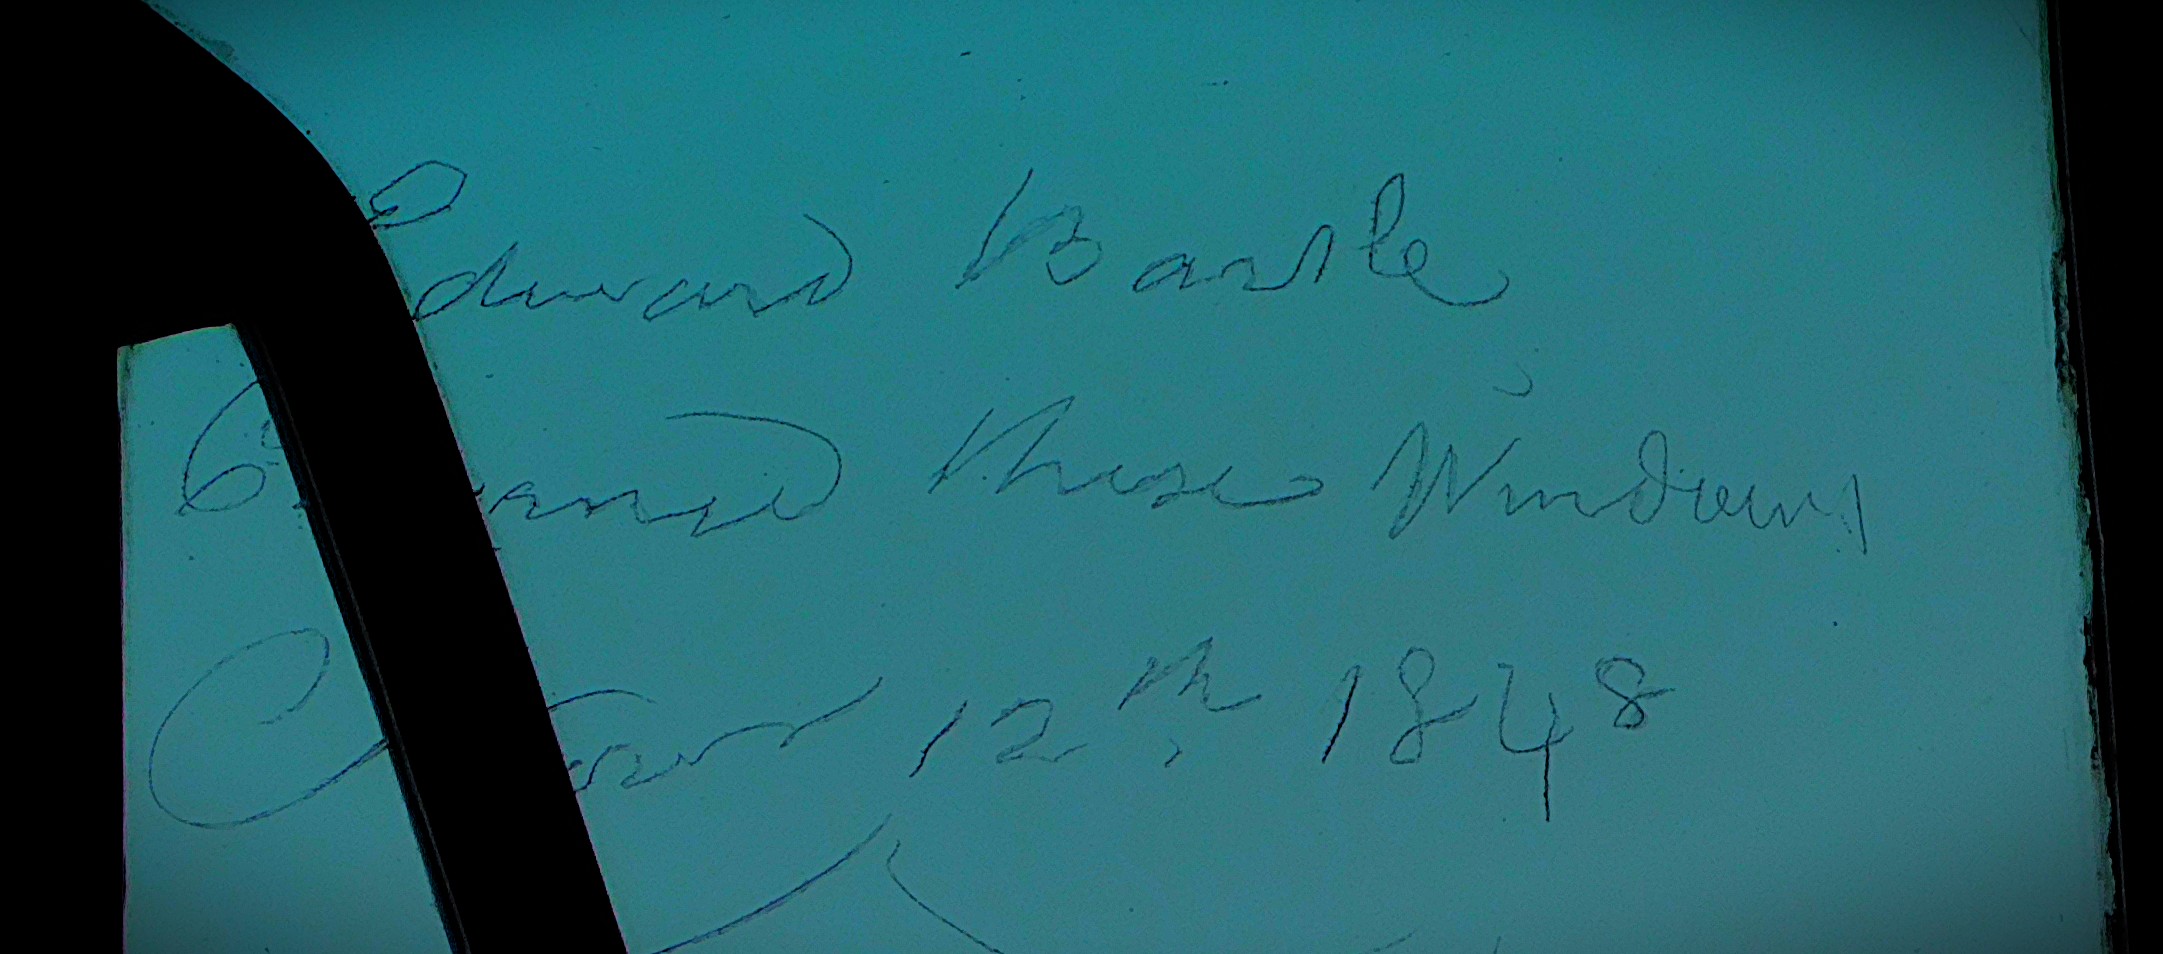 Edward Bartle
Cleaned these Windows
12th 1848